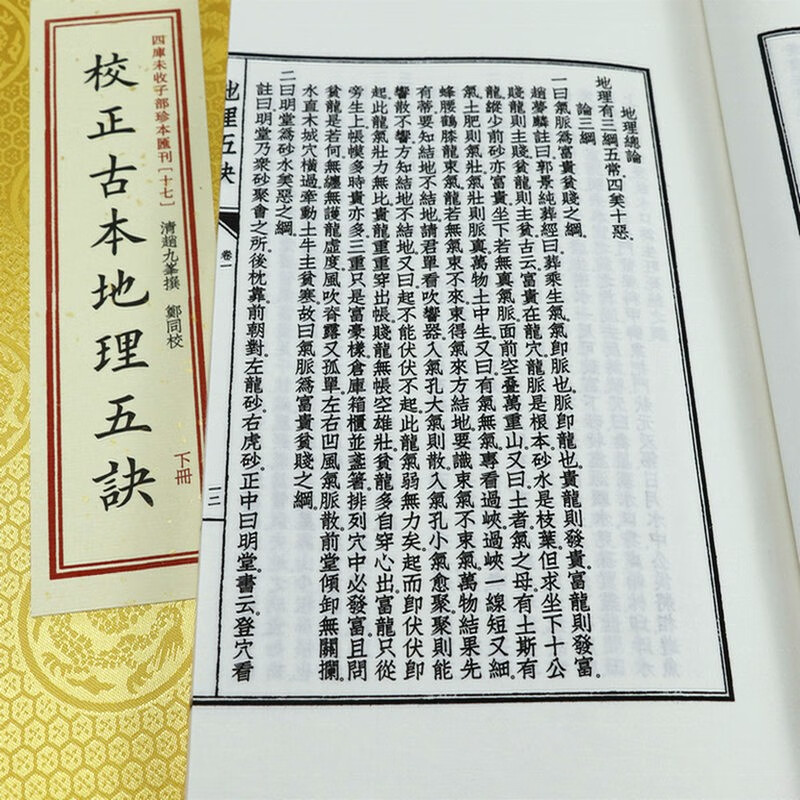 四庫未收子部珍本匯刊〔十七〕
校正古本地理五訣
清趙九峯撰 鄭同校
下冊
地理總論
地理有三綱五常四美十惡。
論三綱
一曰氣脈爲富貴貧賤之綱。
趙夢麟註曰郭景純葬經曰葬乘生氣氣卽脈也脈卽龍也貴龍則發貴富龍則發富。
賤龍則主賤貧龍則主貧古云富貴在龍穴龍脈是根本砂水是枝葉但求坐下十公
龍縱少前砂亦富貴坐下若無真氣脈面前空疊萬重山又曰土者氣之母有土斯有
氣土肥則氣壯氣壯則脈真萬物土中生又曰有氣無氣專看過峽過峽一線短又細。
蜂腰鶴膝龍束氣龍若無氣束不來束得氣來方結地要識束氣不束氣萬物結果先
有蒂要知結地不結地請君單看吹響器入氣孔大氣則散入氣孔小氣愈聚聚則能
響散不響方知結地不結地又曰起不能伏伏不起此龍氣弱無力矣起而卽伏伏卽
起此龍氣壯力無比貴龍重重穿出帳賤龍無帳空雄壯貧龍多自穿心出富龍只從
旁生上帳幙多時貴亦多三重只是富豪樣倉庫箱櫃並盞箸排列穴中必發富且問
貧龍是若何無纏無護龍虛度風吹脊露又孤單左右凹風氣脈散前堂傾卸無關攔。
水直木城穴橫過牽動土牛主貧寒故曰氣脈爲富貴貧賤之綱。
二曰明堂爲砂水美惡之綱。
註曰明堂乃衆砂聚會之所後枕靠前朝對左龍砂右虎砂正中曰明堂書云登穴看
地理五訣
卷一
一二